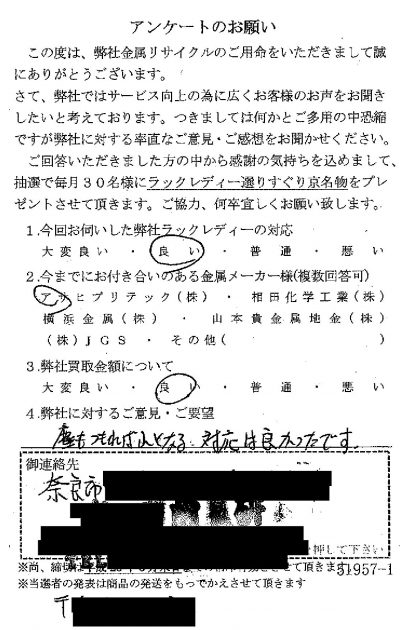 アンケートのお願い
この度は、弊社金属リサイクルのご用命をいただきまして誠
にありがとうございます。
さて、弊社ではサービス向上の為に広くお客様のお声をお聞き
したいと考えております。つきましては何かとご多用の中恐縮
ですが弊社に対する率直なご意見・ご感想をお聞かせください。
ご回答いただきました方の中から感謝の気持ちを込めまして、
抽選で毎月30名様にラックレディー選りすぐり京名物をプレ
ゼントさせて頂きます。ご協力、何卒宜しくお願い致します。
1.今回お伺いした弊社ラックレディーの対応
大変良い ・ 良い ・ 普通 ・ 悪い
2.今までにお付き合いのある金属メーカー様(複数回答可)
アサヒプリテック(株) ・ 相田化学工業(株)
横浜金属(株) ・ 山本貴金属地金(株)
(株)JGS ・ その他( )
3.弊社買取金額について
大変良い ・ 良い ・ 普通 ・ 悪い
4.弊社に対するご意見・ご要望
塵もつもれば山となる 対応は良かったです。
御連絡先
奈良市
押して下さい
※尚、締切は
させて頂きます
31957-1
※当選者の発表は商品の発送をもってかえさせて頂きます
〒